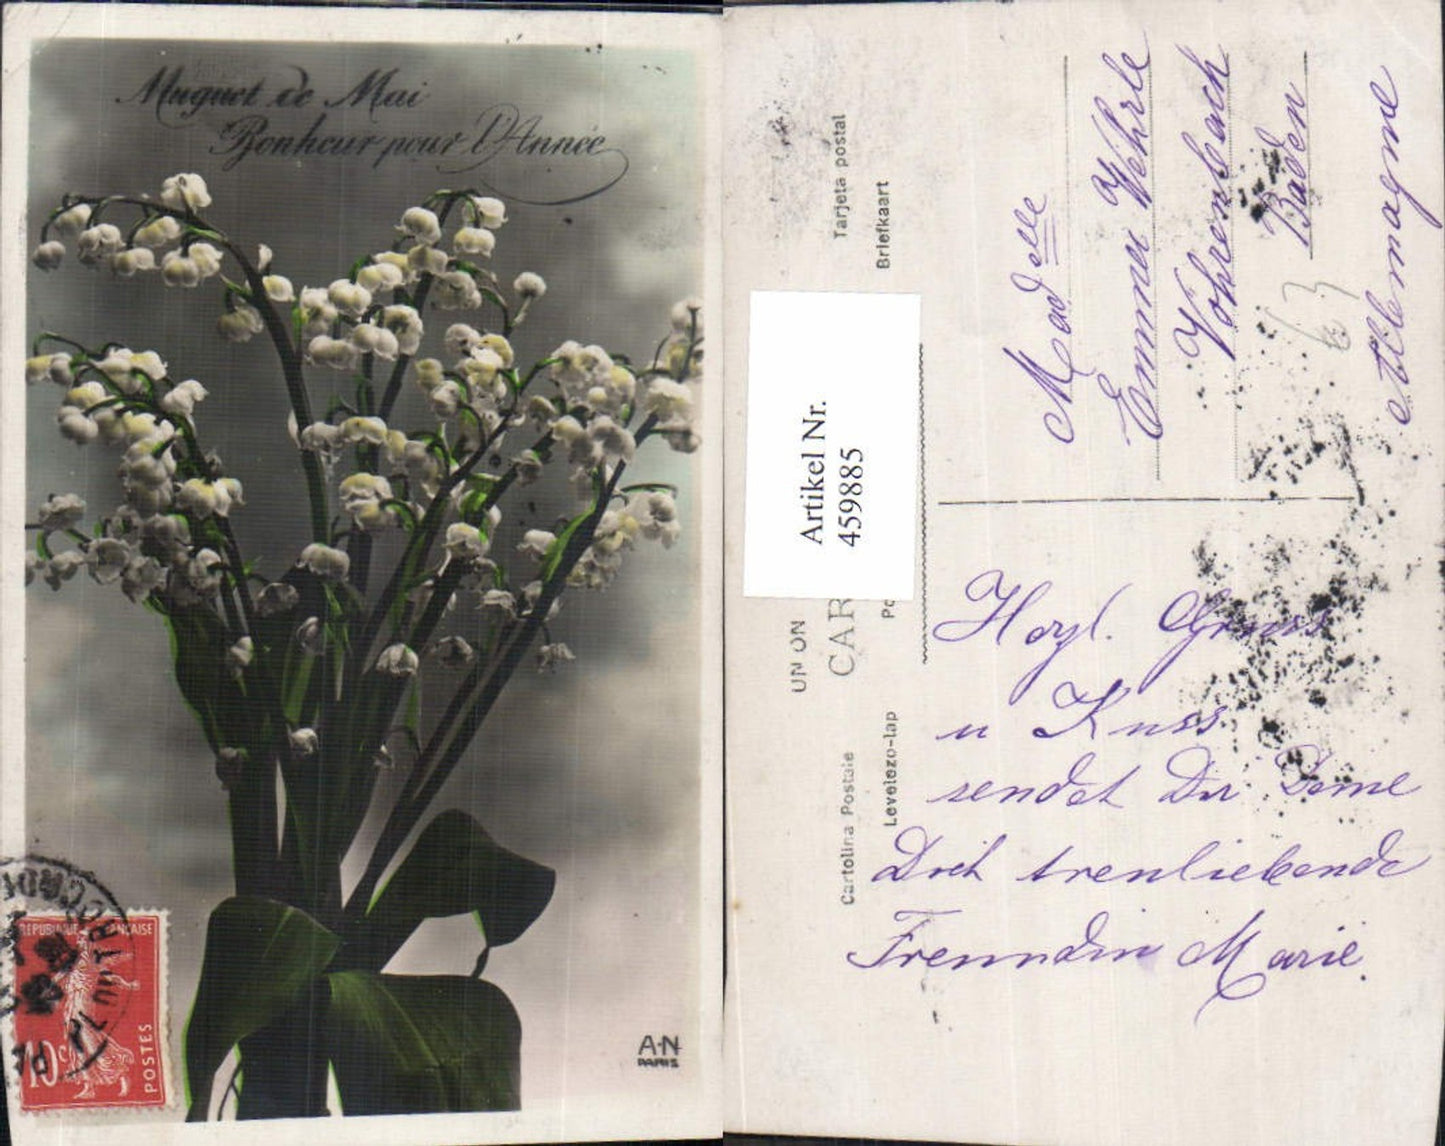 Muguet de Mai
Bonheur pour l'Année
REPUBLIQUE FRANÇAISE
10c
POSTES
A·N
PARIS
UNION
CAR
Tarjeta postal
Briefkaart
Cartolina Postale
Levelezo-lap
Artikel Nr.
459885
Madelle
Emma Wehrle
Vöhrenbach
Baden
63
Allemagne
Hrzl. Gruss
u Kuss
sendet Dir Deine
Dich treuliebende
Freundin Marie.